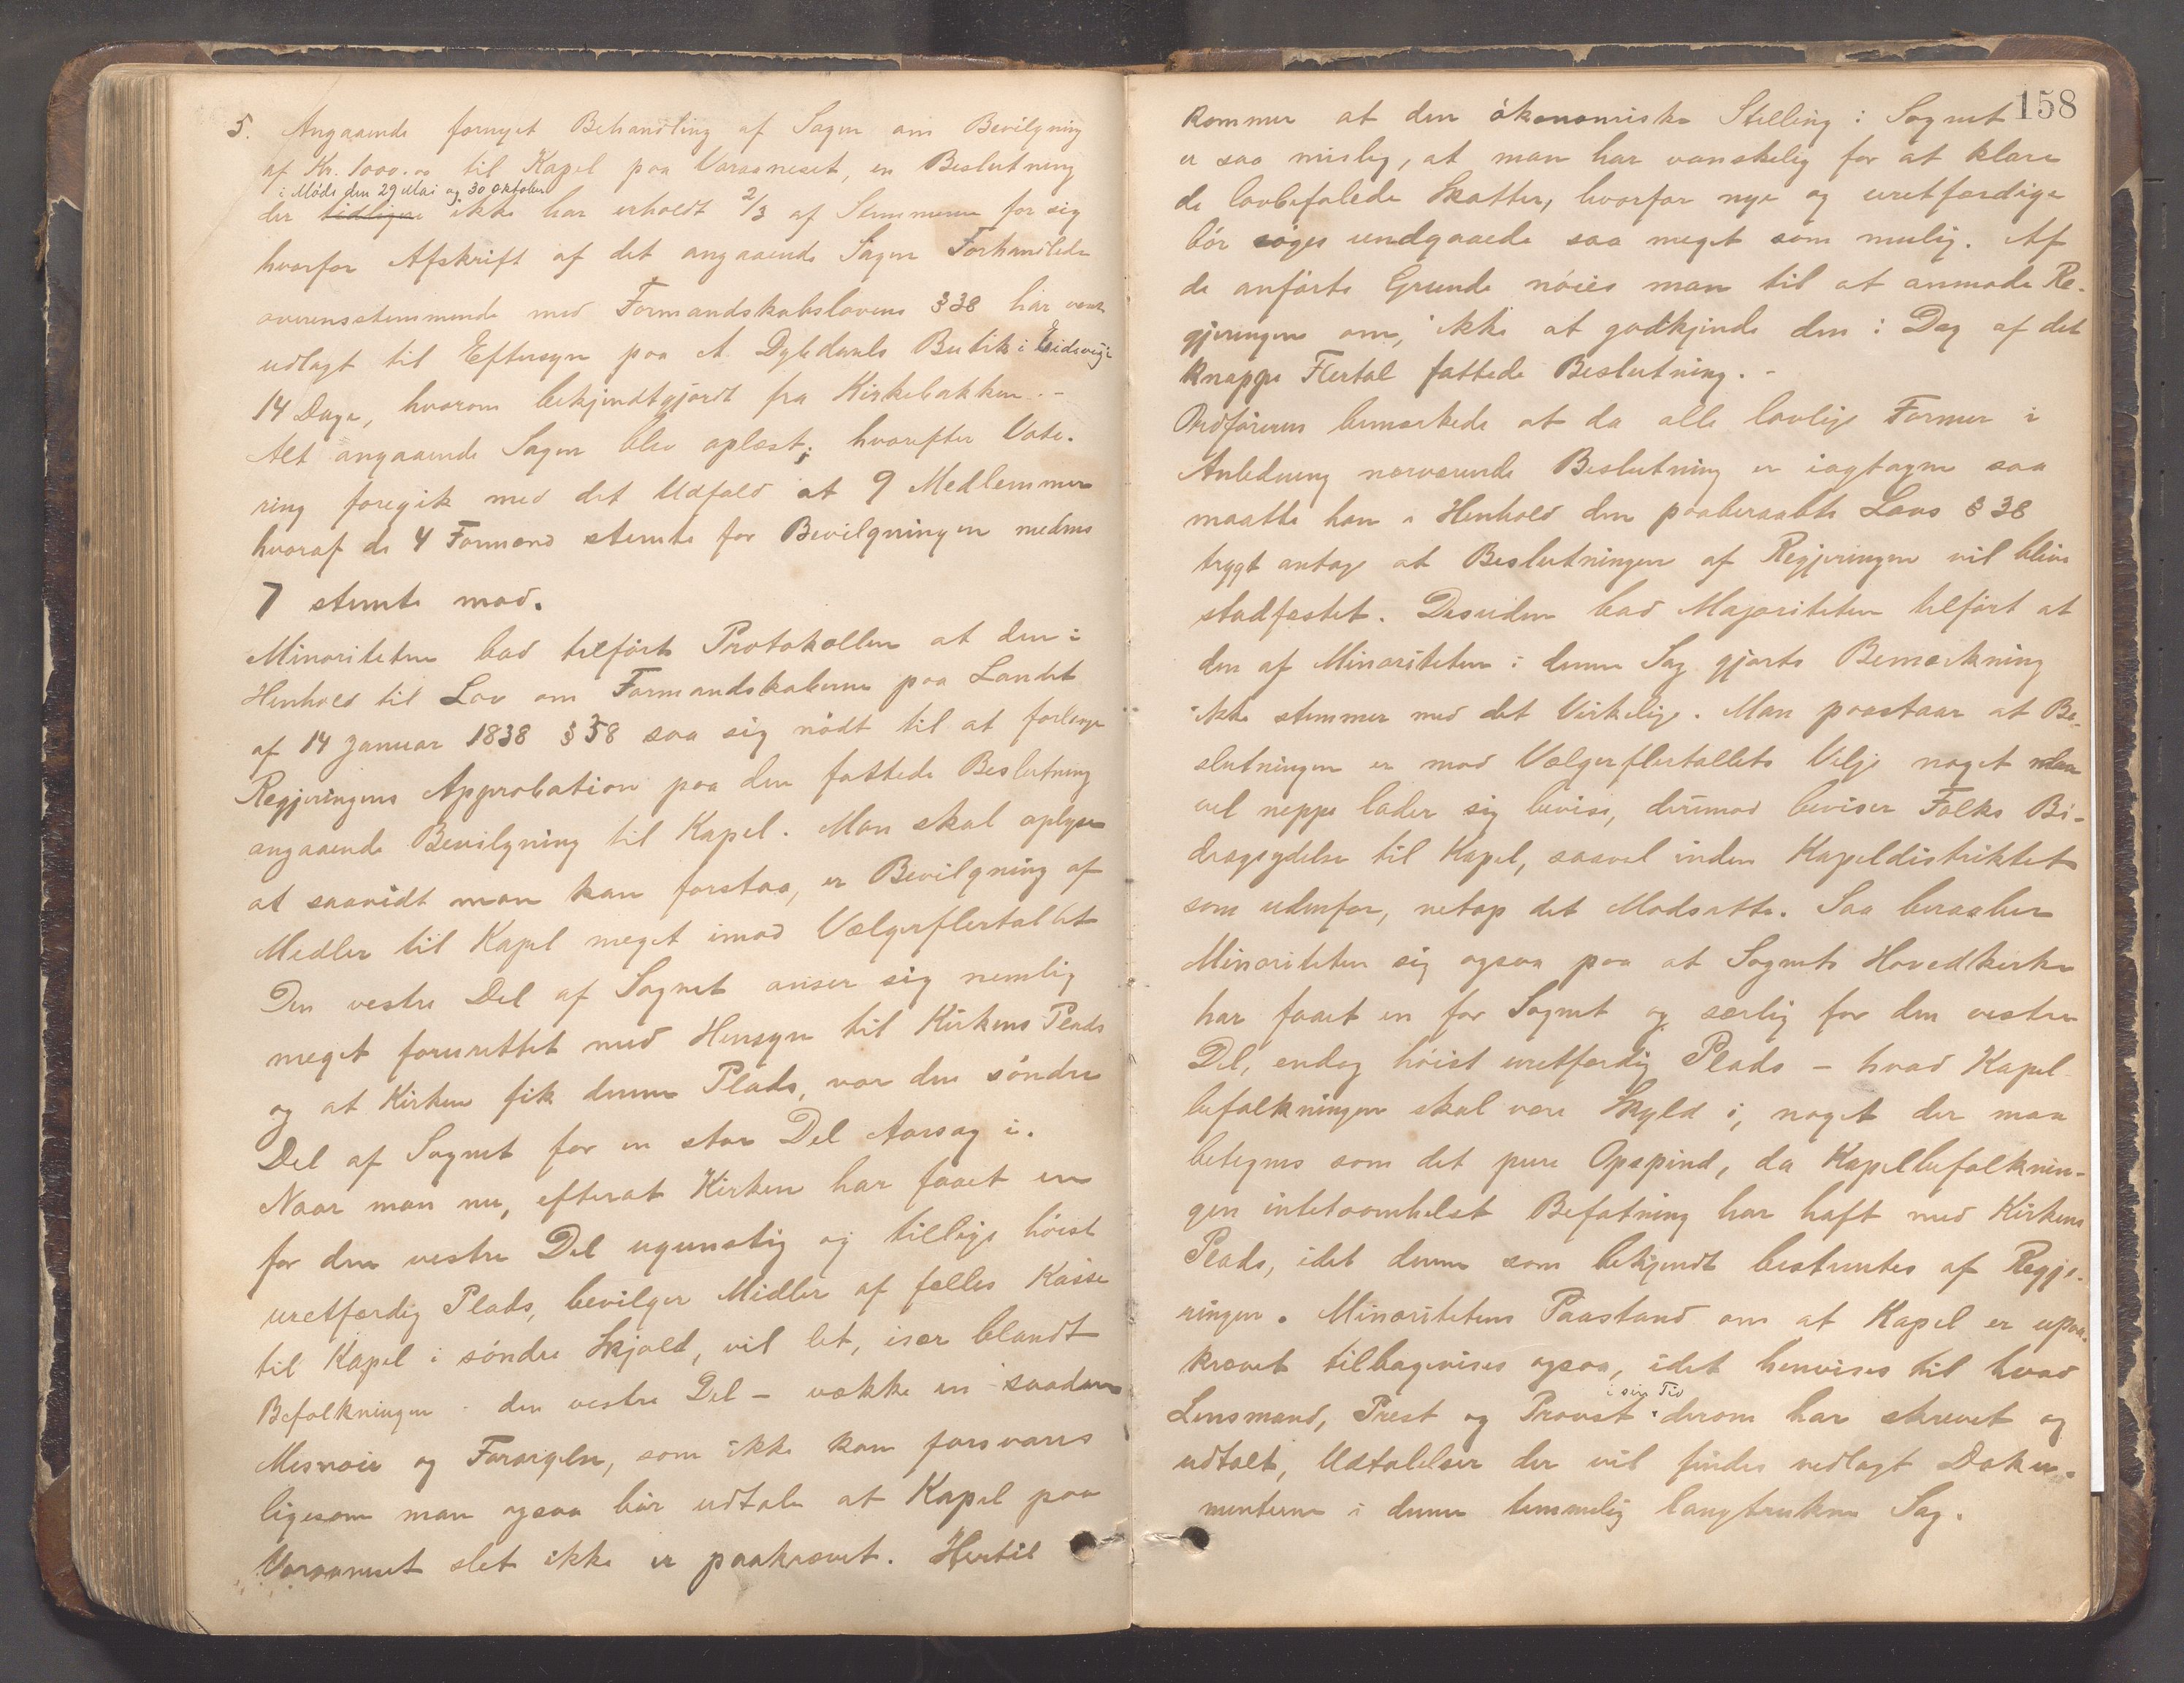 5. Angaaende fornyet Behandling af Sagen om Bevilgning
af Kr. 1000.00 til Kapel paa Varaaneset, en Beslutning
i Møde den 29 Mai og 30 Oktober
der tidligere ikke har erholdt 2/3 af Stemmerne for sig
hvorfor Afskrift af det angaaende Sagen Forhandlede
overensstemmende med Formandskabslovens § 38 har været
udlagt til Eftersyn paa A. Dybdauls Butik i Eidsvig i
14 Dage, hvorom bekjendtgjordt fra Kirkebakken. -
Alt angaaende Sagen blev oplæst; hvorefter Vote-
ring foregik med det Udfald at 9 Medlemmer
hvoraf de 4 Formænd stemte for Bevilgningen medens
7 stemte mod.
Minoriteten bad tilført Protokollen at den i
Henhold til Lov om Formandskaberne paa Landet
af 14 Januar 1838 § 38 saa sig nødt til at forlange
Regjeringens Approbation paa den fattede Beslutning
angaaende Bevilgning til Kapel. Man skal oplyse
at saavidt man kan forstaa, er Bevilgning af
Medler til Kapel meget imod Vælgerflertallet
Den vestre Del af Sognet anser sig nemlig
meget forurettet med Hensyn til Kirkens Plads
og at Kirken fik denne Plads, var den søndre
Del af Sognet for en stor Del Aarsag i.
Naar man nu, efterat Kirken har faaet en
for den vestre Del ugunstig og tillige høist
uretfærdig Plads, bevilger Midler af fælles Kasse
til Kapel i søndre Skjold, vil let, især blandt
Befolkningen i den vestre Del - vække en saadan
Misnøie og Forargelse, som ikke kan forsvares
ligesom man ogsaa bør udtale at Kapel paa
Varaaneset slet ikke er paakrævet. Hertil
158
kommer at den økonomiske Stilling i Sognet
er saa mislig, at man har vanskelig for at klare
de lovbefalede Skatter, hvorfor nye og uretfærdige
bør søges undgaaede saa meget som mulig. Af
de anførte Grunde nøies man til at anmode Re-
gjeringen om, ikke at godkjende den i Dag af det
knappe Flertal fattede Beslutning. -
Ordføreren bemærkede at da alle lovlige Former i
Anledning nærværende Beslutning er iagtagne saa
maatte han i Henhold den paaberaabte Lovs § 38
trygt antage at Beslutningen af Regjeringen vil blive
stadfæstet. Desuden bad Majoriteten tilført at
den af Minoriteten i denne Sag gjorte Bemærkning
ikke stemmer med det Virkelige. Man paastaar at Be-
slutningen er mod Vælgerflertallets Vilje noget
vel neppe lader sig bevise, derimod beviser Folks Bi-
dragsydelse til Kapel, saavel inden Kapeldistriktet
som udenfor, netop det Modsatte. Saa beraaber
Minoriteten sig ogsaa paa at Sognets Hovedkirke
har faaet en for Sognet og særlig for den vestre
Del, endog høist uretfærdig Plads - hvad Kapel
befolkningen skal være Skyld i, noget der man
betegnes som det pure Opspind, da Kapelbefolknin-
gen intetsomhelst Befatning har haft med Kirkens
Plads, idet denne som bekjendt bestemtes af Regje-
ringen. Minoritetens Paastand om at Kapel er upaa-
krævet tilbagevises ogsaa, idet henvises til hvad
i sin Tid
Lensmand, Prest og Provst derom har skrevet og
udtalt, Udtalelser der vil findes vedlagt Doku-
menterne i denne temmelig langtrukne Sag.